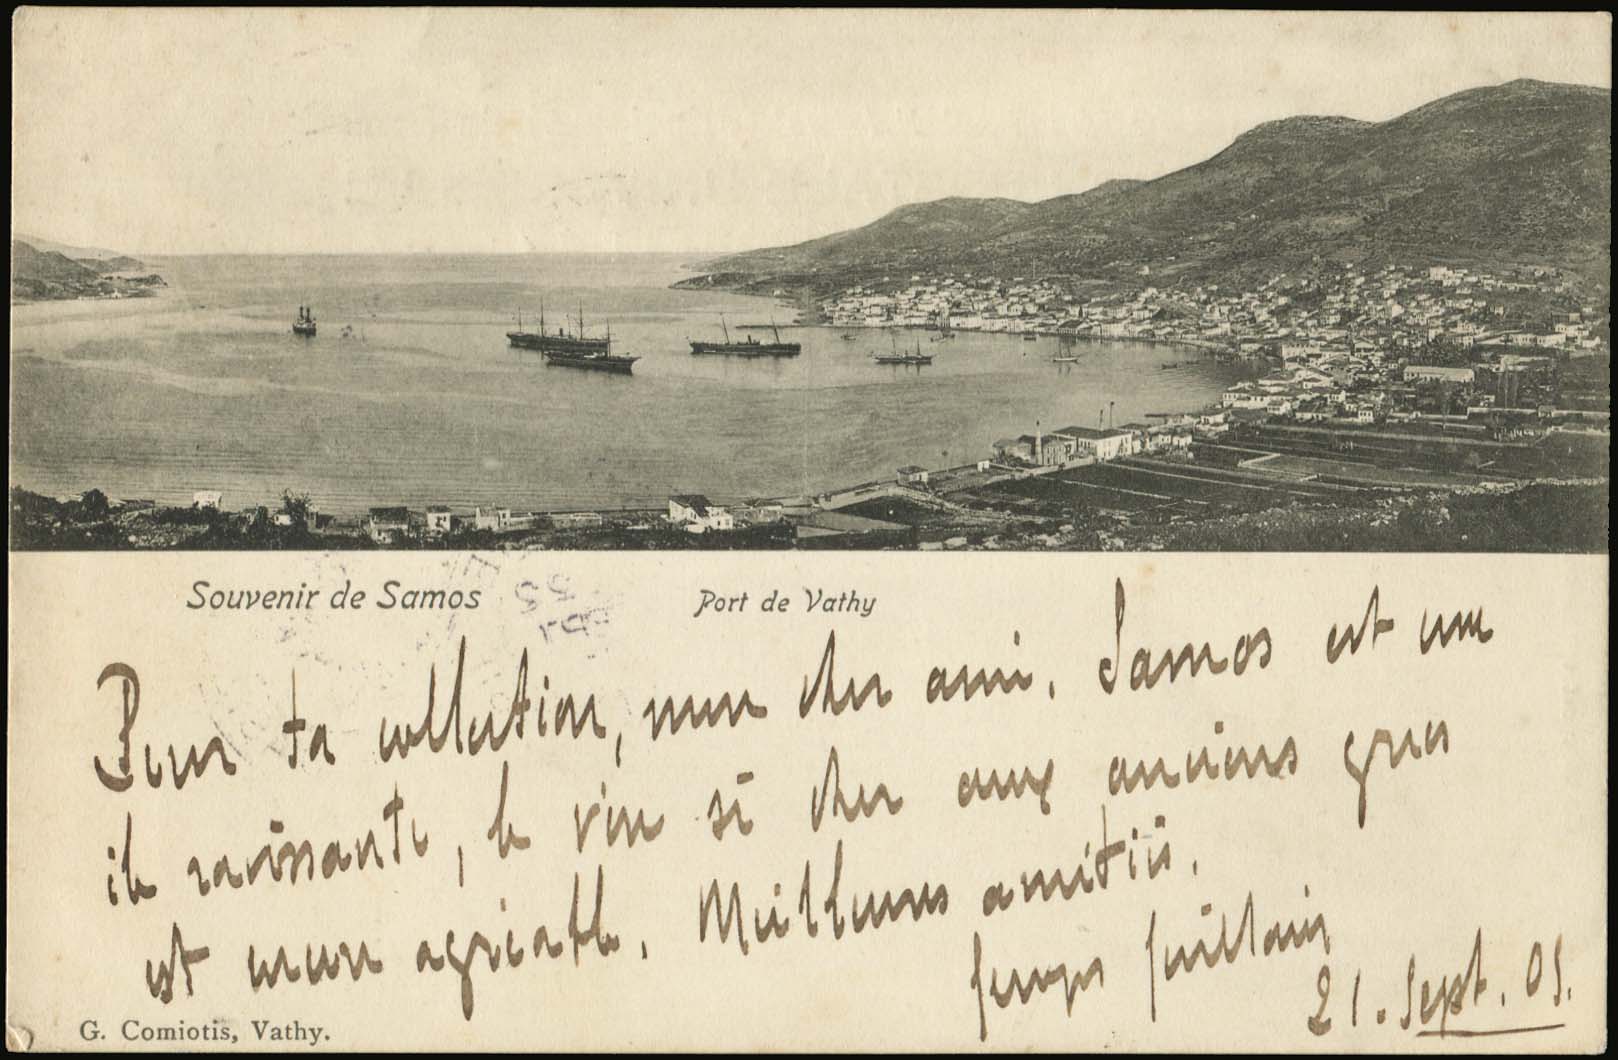 Souvenir de Samos
Port de Vathy
Pour ta collection, mon cher ami. Samos est une
ile ravissante, le vin si cher aux anciens grecs
est encore agréable. Meilleures amitiés.
21. Sept. 05.
G. Comiotis, Vathy.